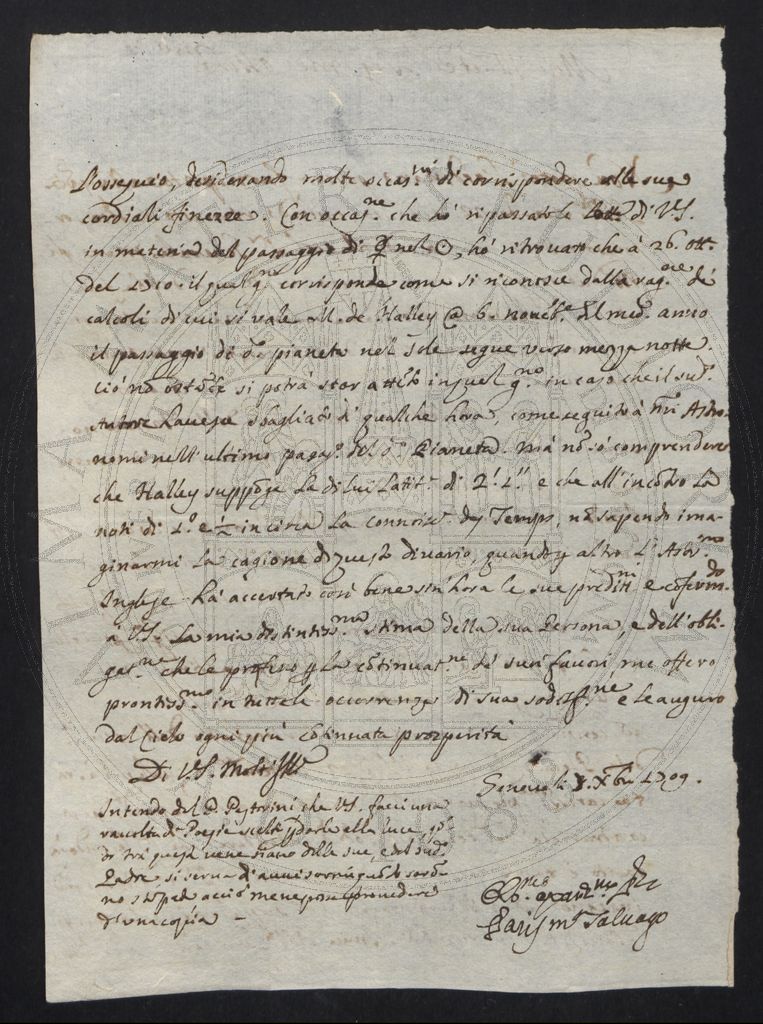 l'ossequio, desiderando molte occas.ni di corrispondere alle sue
cordiali finezze. Con occas.ne che hò ripassato le lett.e di V.S.
in materia del passaggio di ☿ nel ☉, hò ritrovato che à 26. ott.e
del 1710. il qual g.no corrisponde come si riconosce dalla rag.ne de
calcoli di cui si vale M. de Halley @ 6. novēb.e del med.o anno
il passaggio di d.o pianeta nel Sole segue verso mezza notte.
Ciò nō ostāte si potrà star attēto in quel g.no in caso che il sud.o
Autore havesse sbagliato di qualche hora, come seguitò à n̄ri Astro-
nomi nell'ultimo passag.o del d.o Pianeta. Mà nō sò comprendere
che Halley suppōga la di lui Latit.e di 2'. 1''. e che all'incōtro la
noti di 1.° e ½ in circa la di Tempo, nō sapendo ima-
ginarmi la cagione di questo divario, quando p altro l'Astr.mo
Inglese hà accertato così bene sin'hora le sue predit.ni e cōfermādo
a V.S. la mia distintiss.ma stima della sua Persona, e dell'obli-
gat.ne che le professo p la cōtinuat.ne de suoi favori, me offero
prontiss.mo in tutte le occorrenze di sua sodisf.ne e le auguro
dal Cielo ogni più cōtinuata prosperità
Di V.S. Molt'Ill.e
Genova li Xbre 1709.
Intendo dal P. che V.S. facci una
raccolta di Poesie scelte p darle alla luce,
di trè queste ve ne siano delle sue, e del sud.o
Padre si serva di avvisarmi quādo sarā-
no stāpate acciò me ne possa provedere
d'una copia –
Paris M.a Salvago